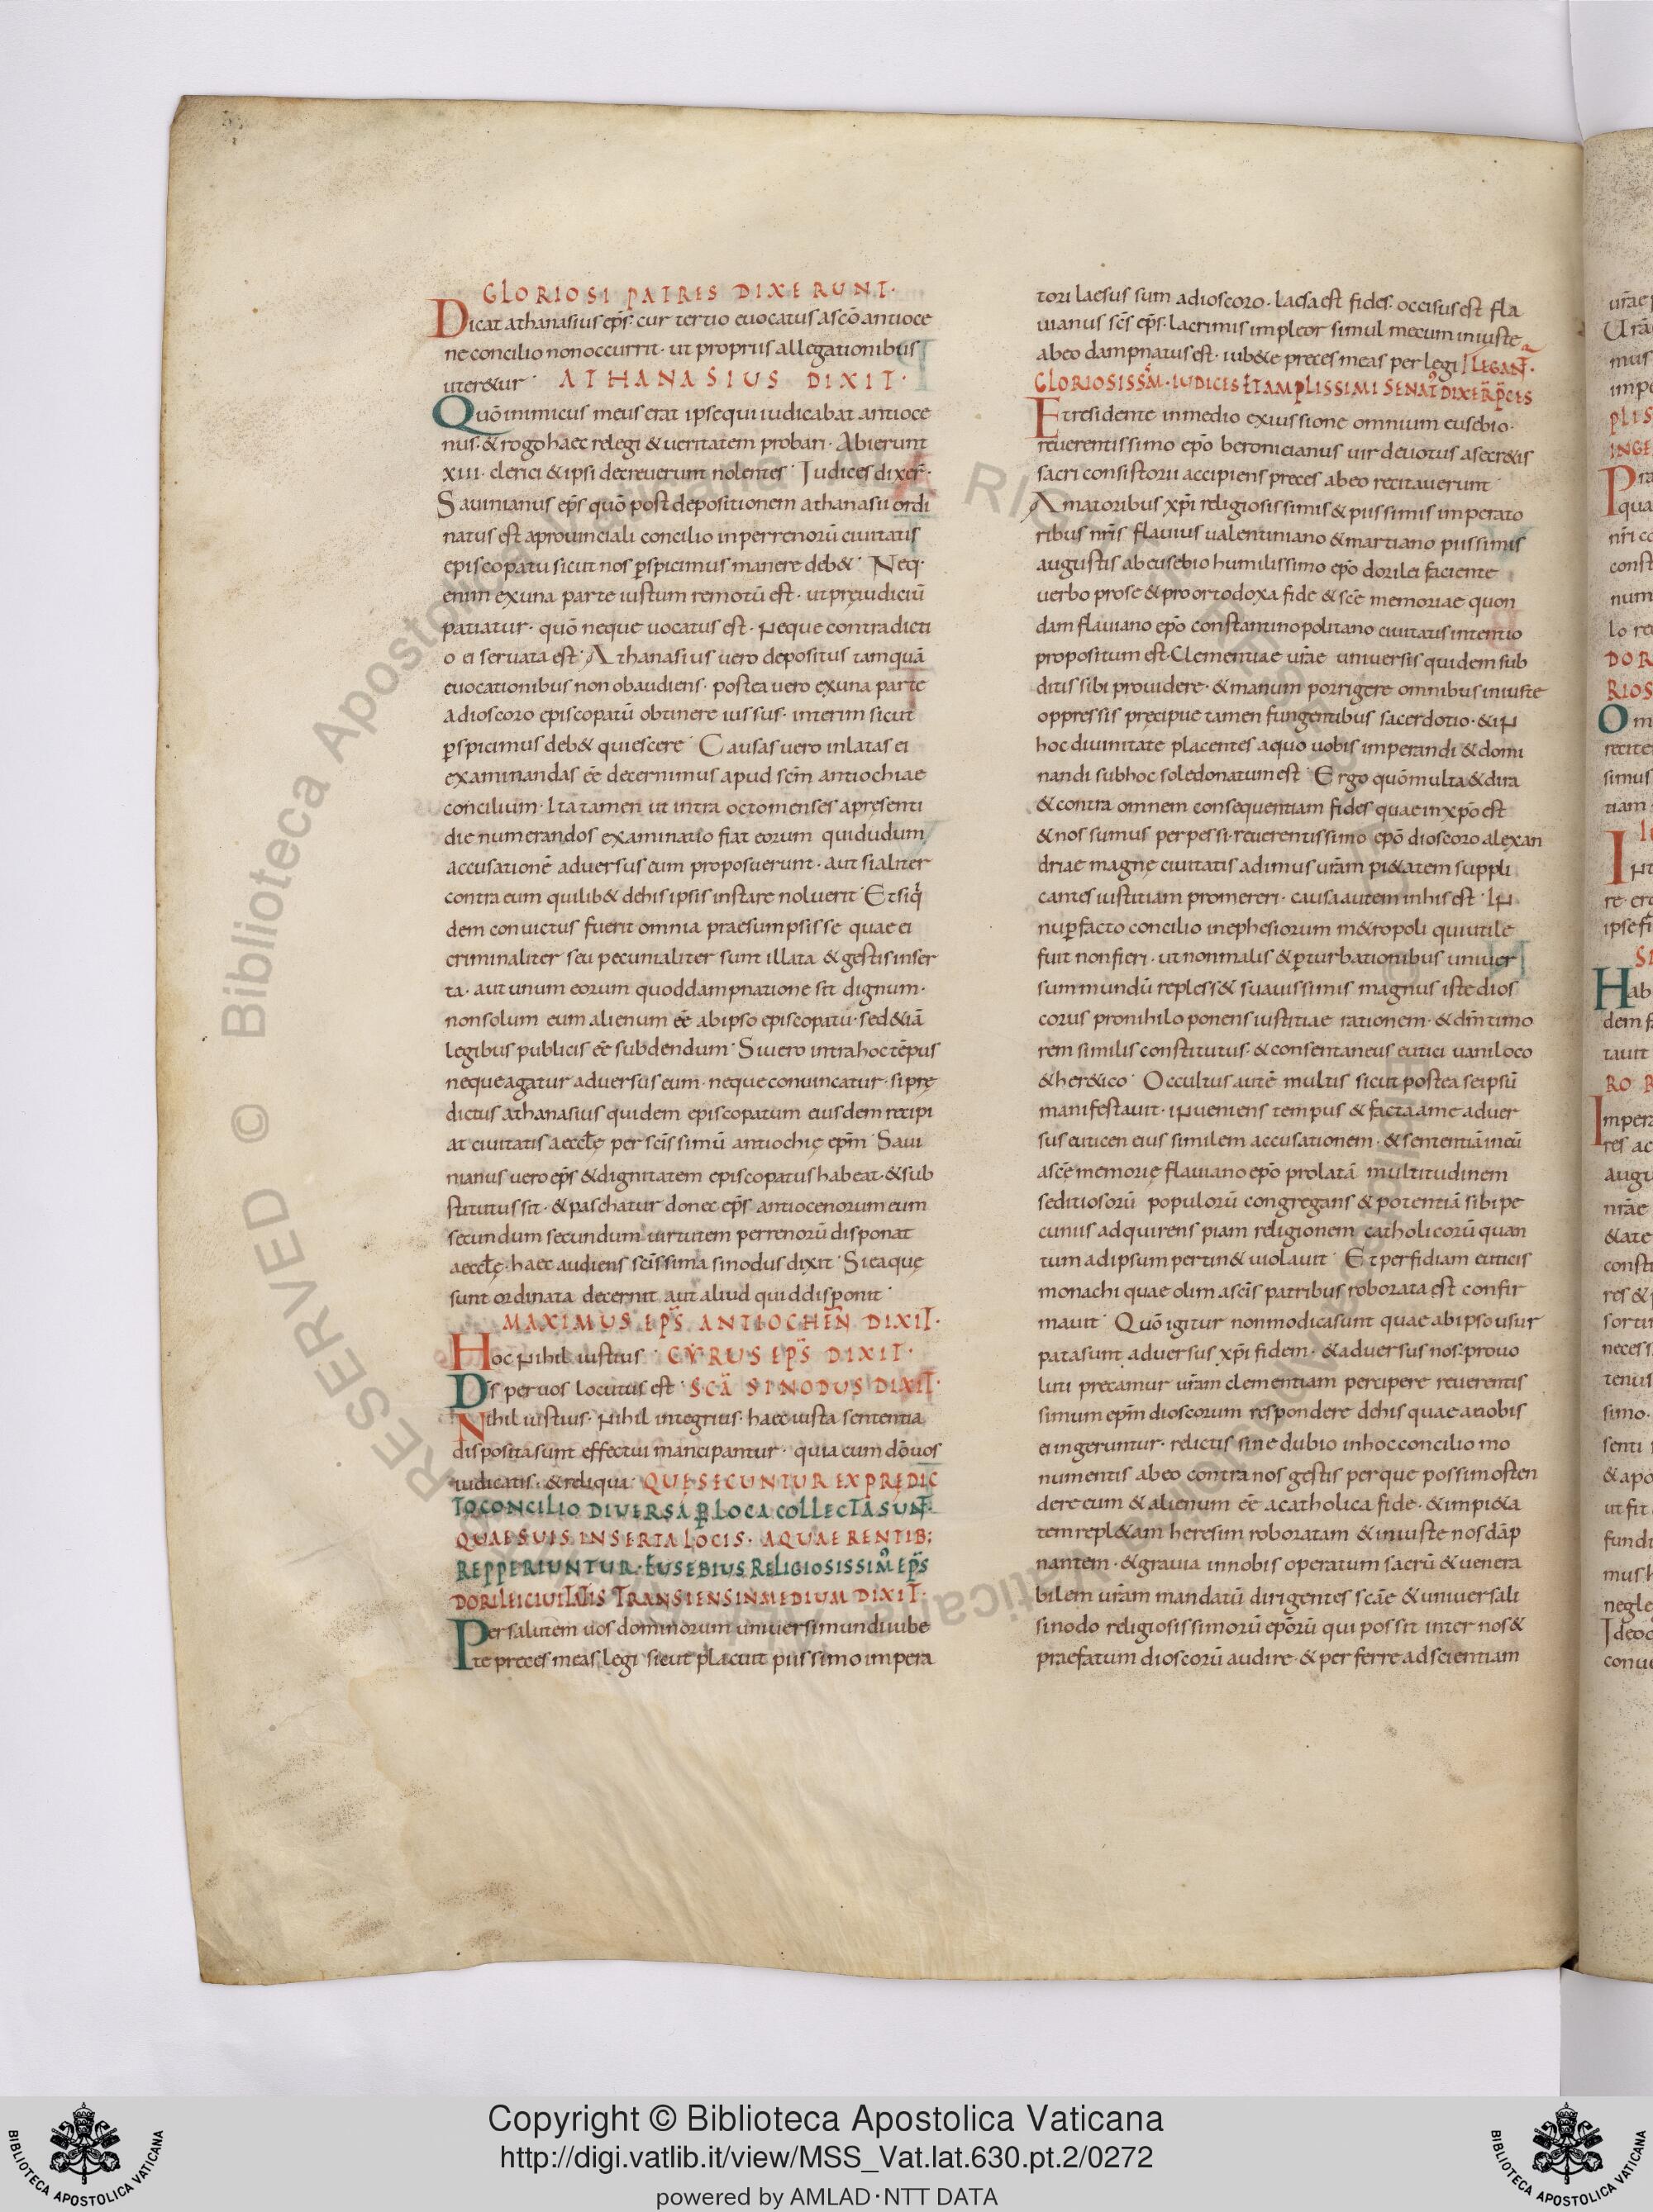 GLORIOSI PATRES DIXERUNT·
Dicat athanasius ep̄s· cur tertio euocatus a scō antioce
ne concilio non occurrit· ut propriis allegationibus
uter&ur ATHANASIUS DIXIT·
Quō inimicus meus erat ipse qui iudicabat antioce
nus· & rogo haec relegi & ueritatem probari· Abierunt
xiii· clerici & ipsi decreuerunt nolentes· Iudices dixer̄·
Sauinianus ep̄s quō post depositionem athanasii ordi
natus est a prouinciali concilio in perrenorū ciuitatis
episcopatu sicut nos ꝑspicimus manere deb&· Neq·
enim ex una parte iustum remotū est· ut pręiudiciū
patiatur· quō neque uocatus est· Neque contradicti
o ei seruata est· Athanasius uero depositus tamquā
euocationibus non obaudiens· postea uero ex una parte
a dioscoro episcopatū obtinere iussus· interim sicut
ꝑspicimus deb& quiescere· Causas uero inlatas ei
examinandas eē decernimus apud scēm antiochiae
concilium· Ita tamen ut intra octo menses a pręsenti
die numerandos examinatio fiat eorum qui dudum
accusationē aduersus eum proposuerunt· aut si aliter
contra eum quilib& de his ipsis instare noluerit· Et siq̇
dem conuictus fuerit omnia praesumpsisse quae ei
criminaliter seu pecunialiter sunt illata & gestis inser
ta· aut unum eorum quod dampnatione sit dignum·
non solum eum alienum eē ab ipso episcopatu· sed &iā
legibus publicis eē subdendum· Si uero intra hoc tēpus
neque agatur aduersus eum· neque conuincatur· si prę
dictus athanasius quidem episcopatum eiusdem recipi
at ciuitatis aeccłę per scīssimū antiochię epīm· Saui
nianus uero ep̄s & dignitatem episcopatus habeat· & sub
stitutus sit· & paschatur donec ep̄s antiocenorum eum
secundum secundum uirtutem perrenorū disponat
aeccłę· haec audiens scīssima sinodus dixit· Si ea quę
sunt ordinata decernit aut aliud quid disponit·
MAXIMUS EP̄S ANTIOCHEN̄ DIXIT·
Hoc Nihil iustius· CYRUS EP̄S DIXIT·
Dſ per uos locutus est· SCĀ SINODUS DIXIT·
Nihil iustius· Nihil integrius· haec iusta sententia
disposita sunt effectui mancipantur· quia cum dō uos
iudicatis· & reliqua· QUE SECUNTUR EX PREDIC
TO CONCILIO DIVERSA P̱ LOCA COLLECTA SUNT·
QUAE SUIS INSERTA LOCIS· A QUAERENTIB;
REPPERIUNTUR· EUSEBIUS RELIGIOSISSIM̊ EP̄S
DORILEI CIUITATIS TRANSIENS IN MEDIUM DIXIT·
Per salutem uos dominorum uniuersi mundi iube
te preces meas legi sicut placuit piissimo impera
tori laesus sum a dioscoro· laesa est fides· occisus est fla
uianus sc̄s ep̄s· lacrimis impleor simul mecum iniuste
ab eo dampnatus est· iub&e preces meas per legi LEGANT̄·
GLORIOSISSM̊· IUDICES ET AMPLISSIMI SENAT̊ DIXER̄ P̄CES
Et residente in medio ex iussione omnium eusebio·
reuerentissimo epō beronicianus uir deuotus a secr&is
sacri consistorii accipiens preces ab eo recitauerunt·
Amatoribus xp̄i religiosissimis & piissimis imperato
ribus nrīs flauius ualentiniano & martiano piissimis
augustis ab eusebio humilissimo epō dorilei faciente
uerbo pro se & pro ortodoxa fide & scē memoriae quon
dam flauiano epō constantinopolitano ciuitatis intentio
propositum est· Clementiae urāe uniuersis quidem sub
ditis sibi prouidere· & manum porrigere omnibus iniuste
oppressis pręcipue tamen fungentibus sacerdotio· & iN
hoc diuinitate placentes a quo uobis imperandi & domi
nandi sub hoc sole donatum est· Ergo quō multa & dira
& contra omnem consequentiam fides quae in xpō est
& nos sumus perpessi· reuerentissimo epō dioscoro alexan
driae magnę ciuitatis adimus urām pi&atem suppli
cantes iustitiam promereri· causa autem in his est· IN
nuꝑ facto concilio in ephesiorum m&ropoli qui utile
fuit non fieri· ut non malis & ꝑturbationibus uniuer
sum mundū repless& suauissimis magnus iste dios
corus pro nihilo ponens iustitiae rationem· & dīm timo
rem similis constitutus· & consentaneus eutici uaniloco
& her&ico· Occultus autē multis sicut postea seipsū
manifestauit· iNueniens tempus & facta a me aduer
sus euticen eius similem accusationem· & sententiā in eū
a scē memorię flauiano epō prolatā multitudinem
seditiosorū populorū congregans & potentiā sibi pe
cuniis adquirens piam religionem catholicorū quan
tum ad ipsum pertin& uiolauit· Et perfidiam euticis
monachi quae olim a scīs patribus roborata est confir
mauit· Quō igitur non modica sunt quae ab ipso usur
pata sunt aduersus xp̄i fidem· & aduersus nos· prouo
luti precamur urām clementiam percipere reuerentis
simum epīm dioscorum respondere de his quae a nobis
ei ingeruntur· relictis sine dubio in hoc concilio mo
numentis ab eo contra nos gestis per que possim osten
dere eum & alienum eē a catholica fide· & impi&a
tem repl&am heresim roboratam & iniuste nos dāp
nantem· & grauia in nobis operatum sacrū & uenera
bilem urām mandatū dirigentes scāe & uniuersali
sinodo religiosissimorū epōrū qui possit inter nos &
praefatum dioscorū audire· & per ferre ad scientiam
Copyright © Biblioteca Apostolica Vaticana
http://digi.vatlib.it/view/MSS_Vat.lat.630.pt.2/0272
powered by AMLAD·NTT DATA
BIBLIOTECA APOSTOLICA VATICANA
BIBLIOTECA APOSTOLICA VATICANA